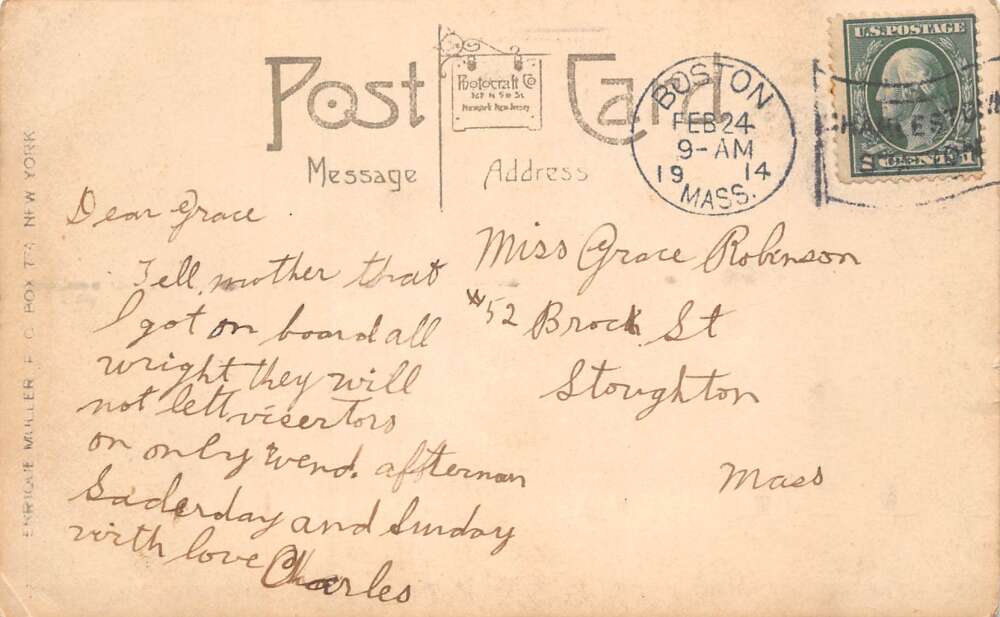 Post Card
Photocraft Co
Newark New Jersey
Message
Address
BOSTON
FEB 24
9-AM
19 14
MASS.
U.S. POSTAGE
Dear Grace
Tell mother that
I got on board all
wright they will
not lett visertors
on only wend. affternan
Saderday and Sunday
with love Charles
Miss Grace Robinson
#52 Brock St
Stoughton
Mass
ENRIQUE MULLER P. O. BOX NEW YORK